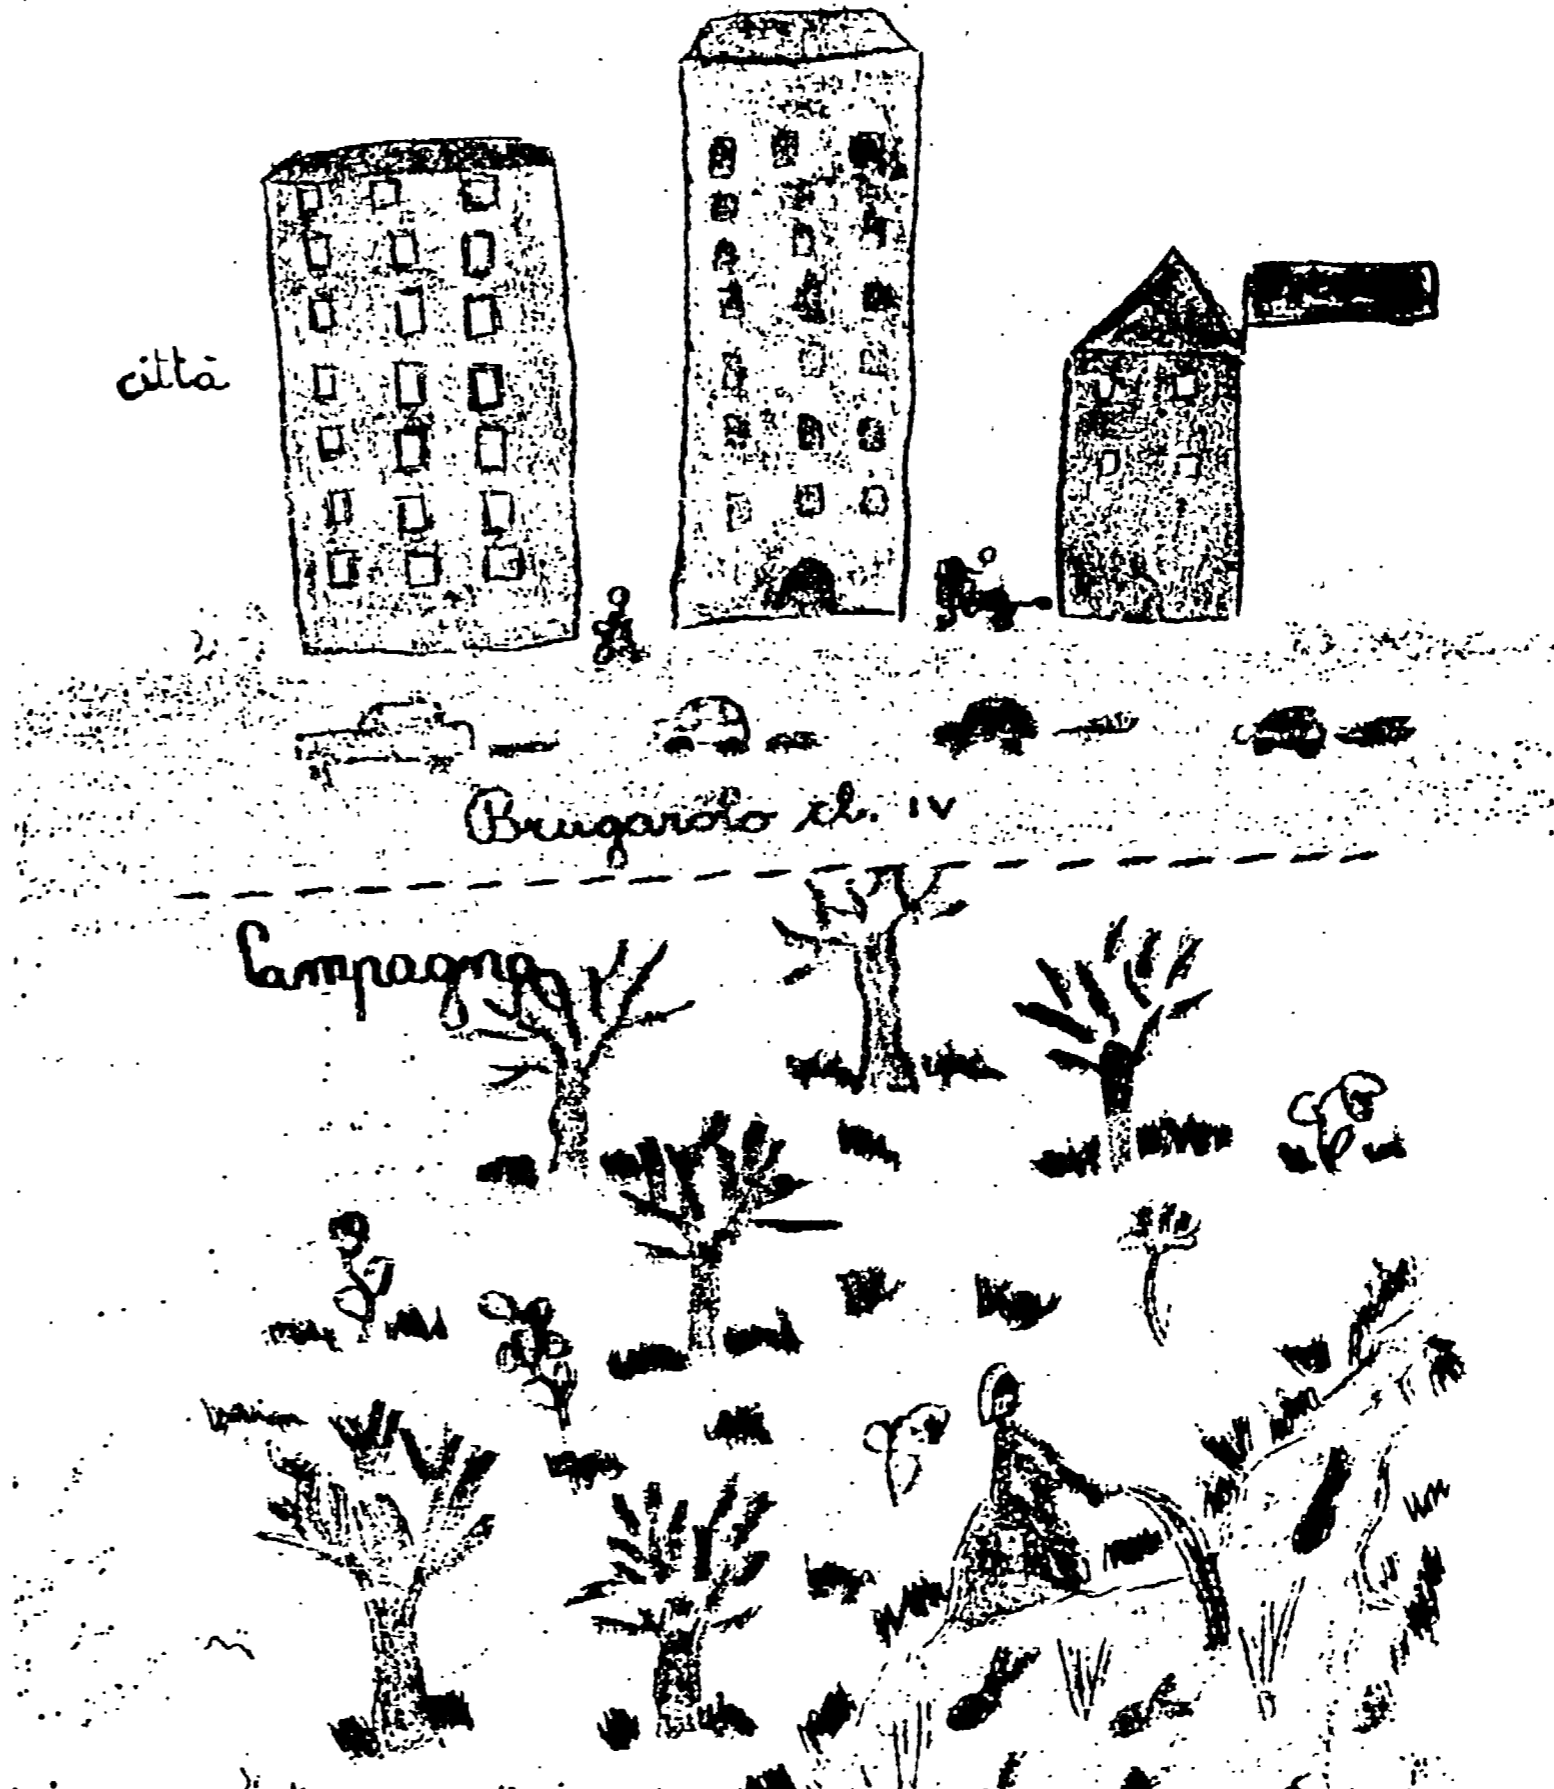 città
Brugarolo cl. IV
Campagna